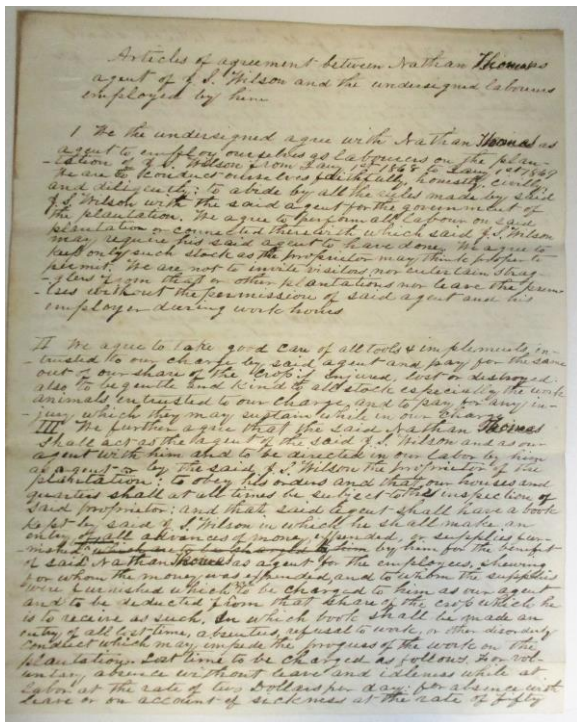 Articles of agreement between Nathan Thomas
agent of J. S. Wilson and the undersigned labourers
employed by him
I We the undersigned agree with Nathan Thomas as
agent to employ ourselves as labourers on the plan-
-tation of J. S. Wilson from Jany 1st 1868 to Jany 1st 1869
We are to conduct ourselves faithfully, honestly, civilly
and diligently: to abide by all the rules made by said
J. S. Wilson with the said agent for the government of
the plantation. We agree to perform all labour on said
plantation or connected therewith which said J. S. Wilson
may require his said agent to have done. We agree to
keep only such stock as the proprietor may think proper to
permit. We are not to invite visitors nor entertain strag-
-glers from that or other plantations nor leave the prem-
-ises without the permission of said agent and his
employer during work hours
II We agree to take good care of all tools & implements in-
-trusted to our charge by said agent and pay for the same
out of our share of the crop if injured, lost or destroyed:
also to be gentle and kind to all stock especially the work
animals entrusted to our charge and to pay for any in-
jury which they may sustain while in our charge
III We further agree that the said Nathan Thomas
shall act as the agent of the said J. S. Wilson and as our
agent with him and to be directed in our labor by him
as agent or by the said J. S. Wilson the proprietor of the
plantation: to obey his orders and that our houses and
quarters shall at all times be subject to the inspection of
said proprietor: and that said agent shall have a book
kept by said J. S. Wilson in which he shall make an
entry of all advances of money expended, or supplies fur-
-nished by him for the benefit
of said Nathan Thomas as agent for the employees, shewing
for whom the money was expended, and to whom the supplies
were furnished which to be charged to him as our agent
and to be deducted from that share of the crop which he
is to receive as such. In which book shall be made an
entry of all lost time, absentees, refusal to work, or other disorderly
conduct which may impede the progress of the work on the
plantation. Lost time to be charged as follows. For vol-
-untary absence without leave and idleness while at
labor at the rate of two Dollars per day: for absence with
leave or on account of sickness at the rate of fifty